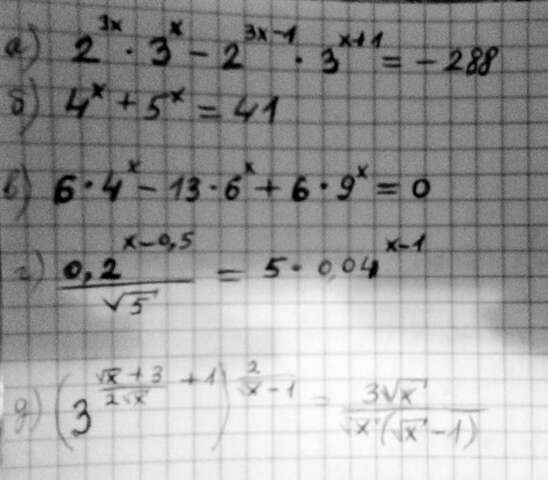 а) 2^{3x} · 3^x − 2^{3x−1} · 3^{x+1} = −288
б) 4^x + 5^x = 41
в) 6 · 4^x − 13 · 6^x + 6 · 9^x = 0
г) \frac{0,2^{x−0,5}}{√5} = 5 · 0,04^{x−1}
д) (3^{\frac{√x + 3}{2√x} + 1})^{\frac{2}{√x − 1}} = \frac{3√x}{√x(√x − 1)}